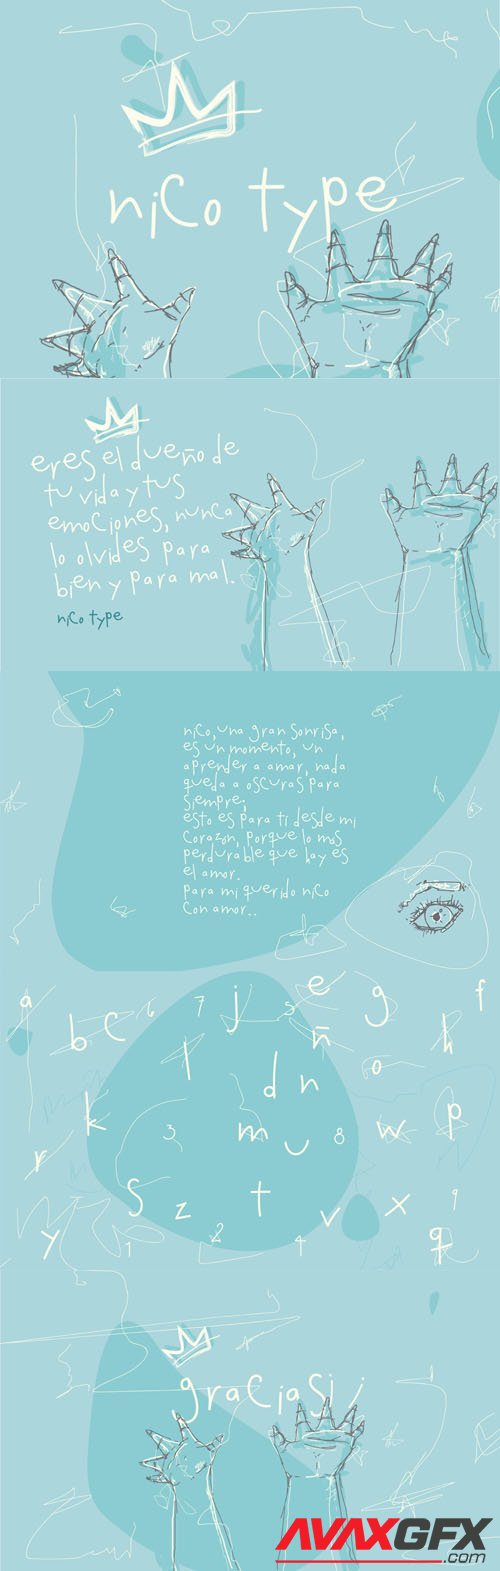 nico type
eres el dueño de
tu vida y tus
emociones, nunca
lo olvides para
bien y para mal.
nico type
nico, una gran sonrisa,
es un momento, un
aprender a amar, nada
queda a oscuras para
siempre;
esto es para ti desde mi
corazon, porque lo mas
perdurable que hay es
el amor.
para mi querido nico
con amor..
a b c 6 7 j 5 e g f
l d n ñ o h
k 3 m u 8 w p
r s z t v x 9
y 1 2 4 q
gracias¡¡
AVAXGFX
.com